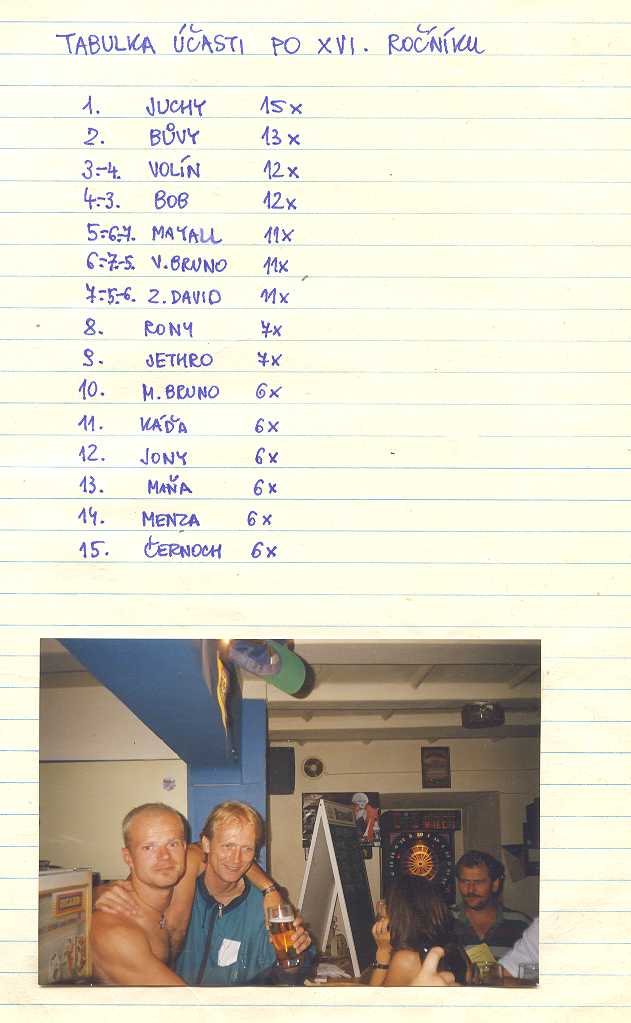 TABULKA ÚČASTI PO XVI. ROČNÍKU
1. JUCHY 15x
2. BŮVY 13x
3.-4. VOLÍN 12x
4.-3. BOB 12x
5.-6.-7. MAYALL 11x
6.-7.-5. V. BRUNO 11x
7.-5.-6. Z. DAVID 11x
8. RONY 7x
9. JETHRO 7x
10. M. BRUNO 6x
11. KÁĎA 6x
12. JONY 6x
13. MAŇA 6x
14. MENZA 6x
15. ČERNOCH 6x